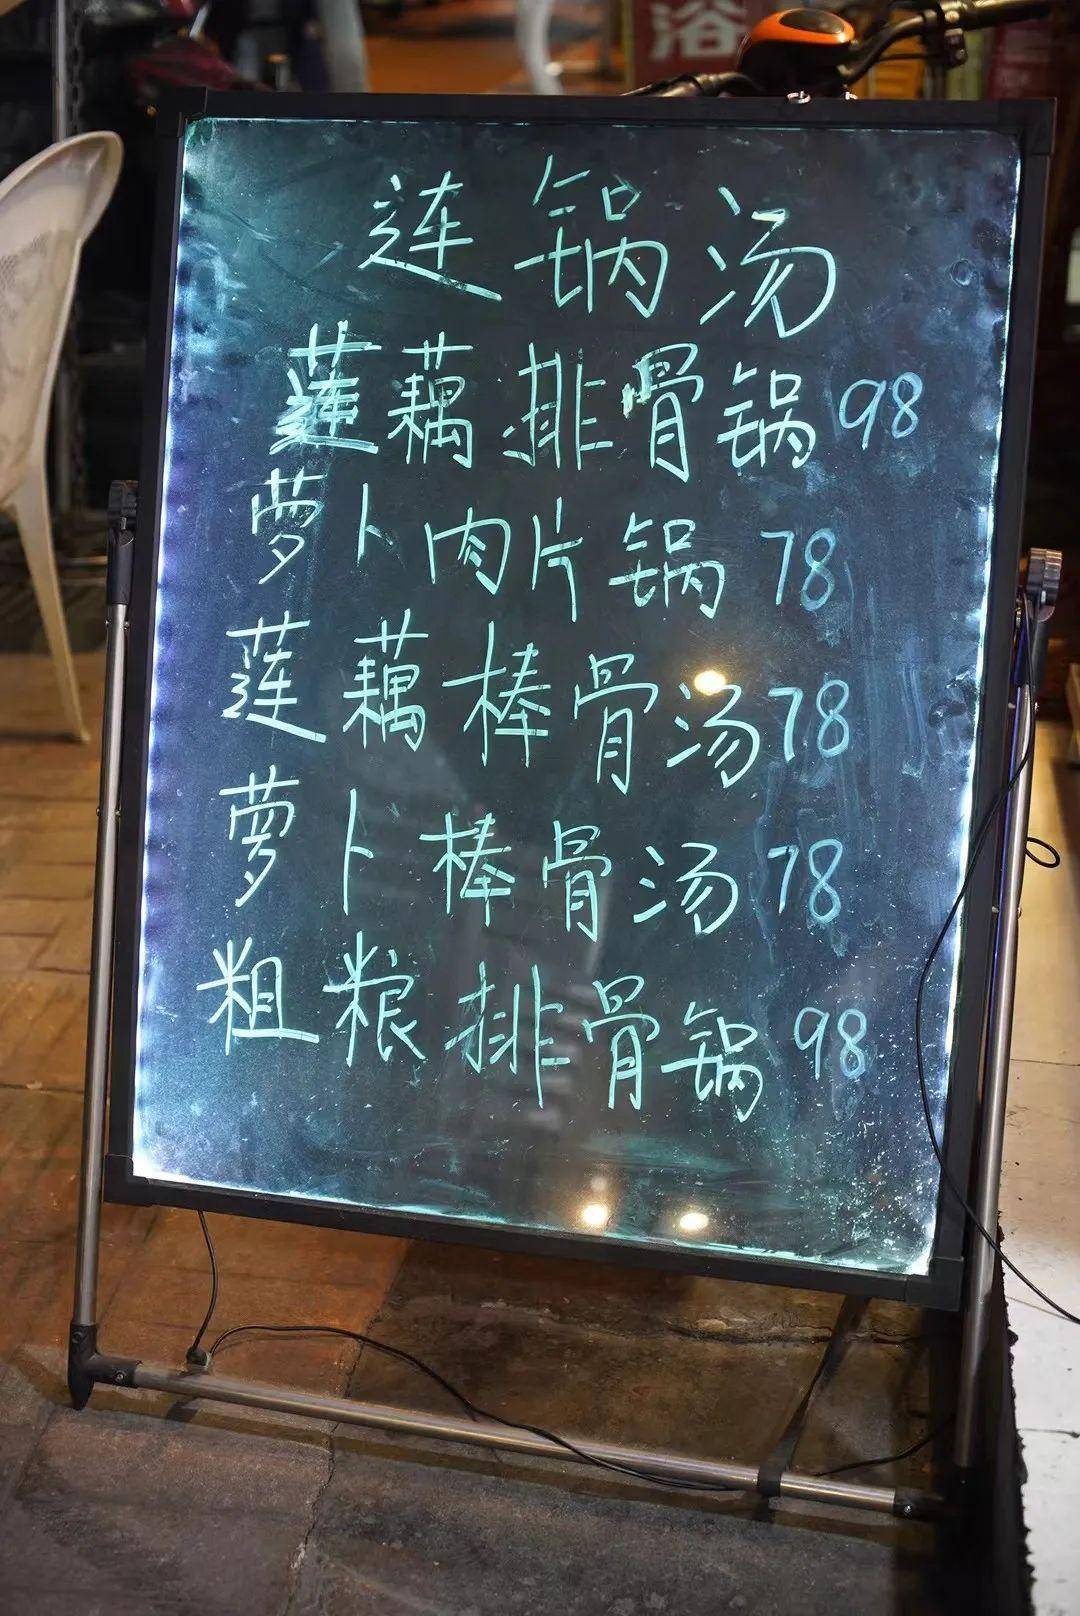 浴
连锅汤
莲藕排骨锅 98
萝卜肉片锅 78
莲藕棒骨汤 78
萝卜棒骨汤 78
粗粮排骨锅 98